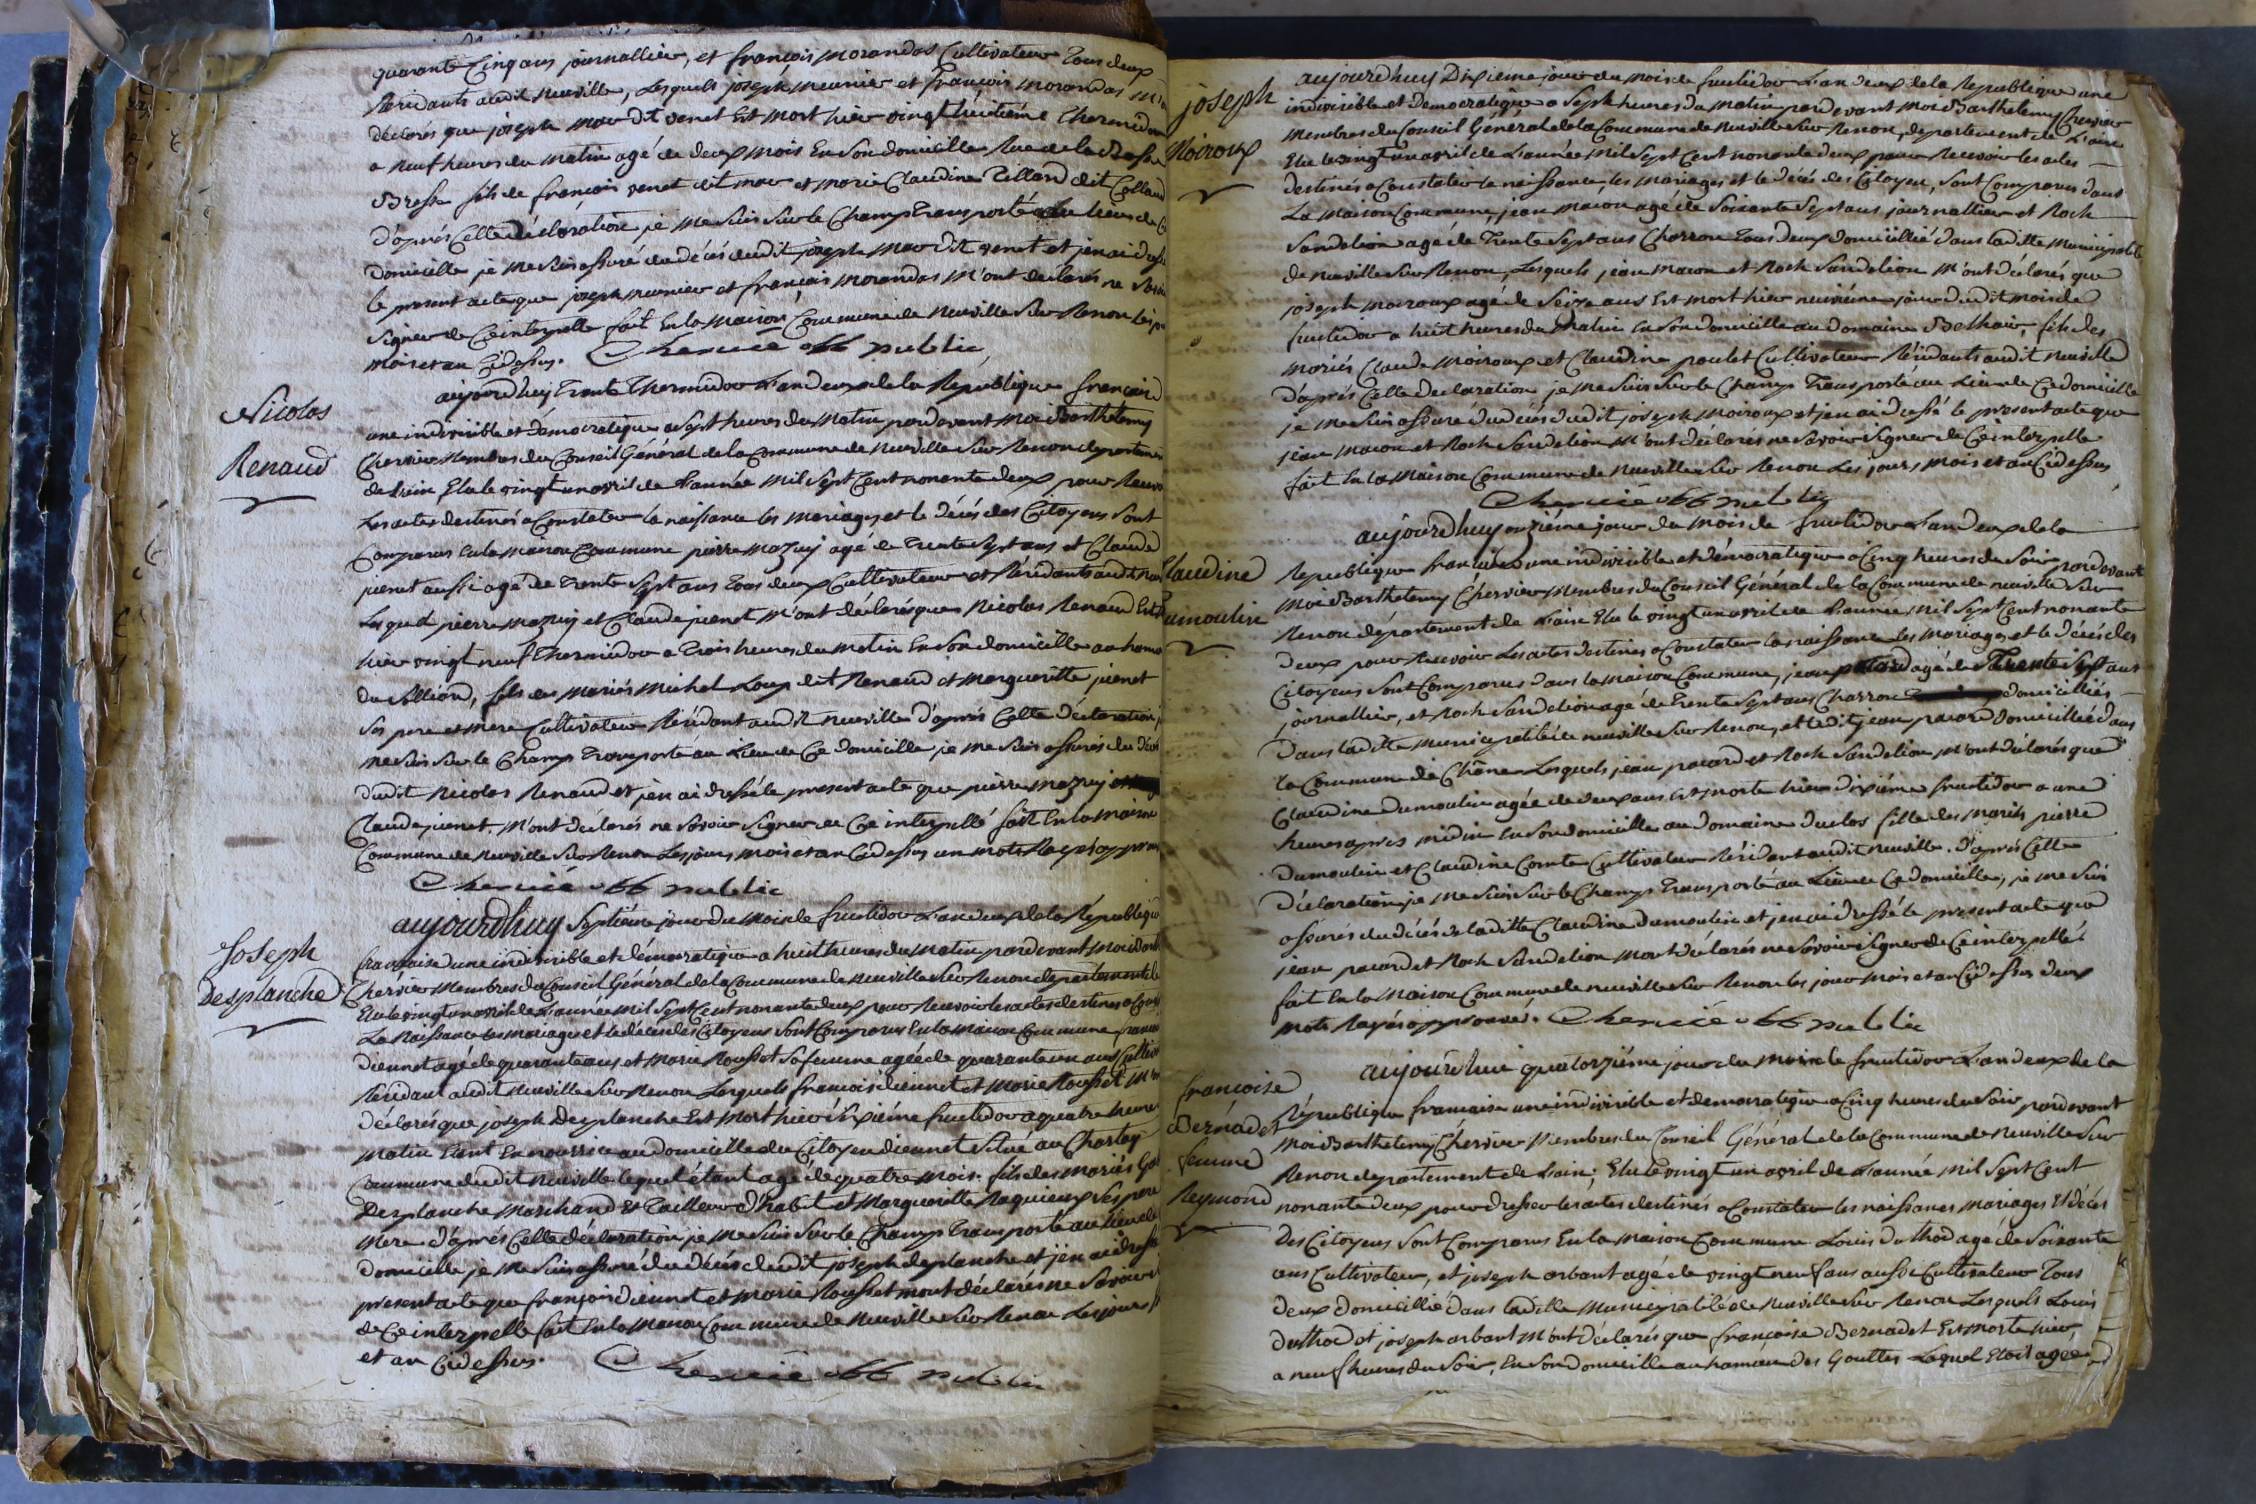 quarante Cinq ans journallier, et françois morandas Cultivateur Tous deux
Résidants audit neuville, Lesquels joseph meunier et françois morandas
déclarés que joseph mar dit venet Est mort hier vingt huitième Thermidor
a neuf heures du matin agé de deux mois En son domicille Rue de la Basse
Bresse fils de françois venet dit mar et marie Claudine Tilland dit Colland
d'après Cette déclaration je me suis sur le Champ Transporté au lieu de
domicille je me suis assuré du décès dudit joseph mar dit venet et jen ai
le present acte que joseph meunier et françois morandas m'ont déclarés ne
signer de Ce interpellé fait En la maison Commune de neuville sur Renon
mois et an Cidessus. Chervié off public
Nicolas
Renaud
aujourdhuy Trente Thermidor L'an deux de la République
une indivisible et démocratique a Sept heures du matin pardevant moi Barthelemy
Chervier Membres du Conseil Général de la Commune de neuville sur Renon
de L'ain Elu le vingt un avril de L'année mil Sept Cent nonante deux pour
Les actes destinés a Constater la naissance les mariages et le décès des Citoyens sont
Comparus En la maison Commune pierre mazuy agé de Trente Sept ans et Claude
jienet aussi agé de Trente Sept ans Tous deux Cultivateur et Résidants audit
Les quel pierre mazuy et Claude jienet m'ont déclarés que Nicolas Renaud
hier vingt neuf Thermidor a Trois heures du matin En son domicille
du Sillion, fils des mariés Michel Loup dit Renaud et margueritte jienet
Ses pere et mere Cultivateur Résidant audit neuville d'après Cette déclaration
me suis sur le Champ Transporté au Lieu de Ce domicille je me suis assurés du
dudit nicolas Renaud et jen ai dressé le present acte que pierre mazuy
Claude jienet m'ont déclarés ne savoir signer de Ce interpellé fait En la maison
Commune de neuville sur Renon Les jours mois et an Cidessus un mots
Chervié off public
Joseph
Desplanche
aujourdhuy Septième jour du mois de fructidor L'an deux de la République
française une indivisible et démocratique a huit heures du matin pardevant moi
Chervier Membres du Conseil Général de la Commune de neuville sur Renon département
Elu le vingt un avril de L'année mil Sept Cent nonante deux pour Recevoir les actes destinés a
La naissance les mariages et le décès des Citoyens sont Comparus En la maison Commune
diennet agé de quarante ans et marie Rousset Sa femme agée de quarante un ans
Résidant audit neuville sur Renon Lesquels françois diennet et marie Rousset
déclarés que joseph Desplanche Est mort hier Sixième fructidor a quatre heures
matin Etant En nourrice au domicille du Citoyen diennet Situé au Chartay
Commune dudit neuville lequel étant agé de quatre mois. fils des mariés
Desplanche marchand Et Tailleur d'habit et marguerite Raquieux Ses pere
mere d'après Cette déclaration je me suis sur le Champ Transporté au lieu
domicille je me suis assuré du décès dudit joseph desplanche et jen ai dressé
present acte que françois diennet et marie Rousset mont déclarés ne Savoir
de Ce interpellé fait En la maison Commune de neuville sur Renon Les jours
et an Cidessus. Chervié off public
joseph
Moiroux
aujourdhuy Dixieme jour du mois de fructidor L'an deux de la République une
indivisible et democratique a Sept heures du matin pardevant moi Barthelemy Chervier
Membres du Conseil Général de la Commune de neuville sur Renon, département de L'ain
Elu le vingt un avril de L'année mil Sept Cent nonante deux pour Recevoir les actes
destinés a Constater la naissance, les mariages et le décès des Citoyens, Sont Comparus dans
La maison Commune, jean macon agé de Soixante Sept ans journallier et Rock
Sandelion agé de Trente Sept ans Charron Tous deux domicillié dans laditte municipalité
de neuville sur Renon, Lesquels jean macon et Rock Sandelion m'ont déclarés que
joseph moiroux agé de Seize ans Est mort hier neuvième jour dudit mois de
fructidor a huit heures du matin En son domicille au domaine Belhair, fils des
mariés Claude Moiroux et Claudine poulet Cultivateur Résidants audit neuville
d'après Cette declaration je me suis sur le Champ Transporté au Lieu de Ce domicille
je me suis assure du décès dudit joseph moiroux et jen ai dressé le present acte que
jean macon et Rock Sandelion m'ont déclarés ne savoir signer de Ce interpellé
fait En la maison Commune de neuville sur Renon Les jours mois et an Cidessus,
Chervié off public
Claudine
Dumoulin
aujourdhuy onzième jour du mois de fructidor L'an deux de la
République française une indivisible et démocratique a Cinq heures du Soir pardevant
moi Barthelemy Chervier Membres du Conseil Général de la Commune de neuville sur
Renon département de L'ain Elu le vingt un avril de L'année mil Sept Cent nonante
deux pour Recevoir Les actes destinés a Constater la naissance les mariages et le décès des
Citoyens Sont Comparus dans la maison Commune, jean pacard agé de Trente Sept ans
journallier, et Rock Sandelion agé de Trente Sept ans Charron domicilliés
dans laditte municipalité de neuville sur Renon, et ledit jean pacard domicillié dans
la Commune de Chãne Lesquels jean pacard et Rock Sandelion m'ont déclarés que
Claudine dumoulin agée de deux ans Est morte hier dixième fructidor a une
heures après midi En son domicille au domaine duclos fille des mariés pierre
dumoulin et Claudine Comte Cultivateur Résidant audit neuville. d'après Cette
déclaration je me suis sur le Champ Transporté au Lieu de Ce domicille, je me suis
assurés du décès de laditte Claudine dumoulin et jen ai dressé le present acte que
jean pacard et Rock Sandelion mont déclarés ne Savoir signer de Ce interpellés
fait En la maison Commune de neuville sur Renon les jour mois et an Cidessus deux
mots Rayés approuvé. Chervié off public
françoise
Bernadet
femme
Reymond
aujourdhui quatorzième jour du mois de fructidor L'an deux de la
République française une indivisible et democratique a Cinq heures du Soir pardevant
moi Barthelemy Chervier Membres du Conseil Général de la Commune de neuville sur
Renon departement de L'ain; Elu le vingt un avril de L'année mil Sept Cent
nonante deux pour dresser les actes destinés a Constater les naissances mariages Et décès
des Citoyens Sont Comparus En la maison Commune Louis duthod agé de Soixante
ans Cultivateur, et joseph arbant agé de vingt neuf ans aussi Cultivateur Tous
deux domicillié dans laditte municipalité de neuville sur Renon Lesquels Louis
duthod et joseph arbant m'ont déclarés que françoise Bernadet Est morte hier
a neuf heures du Soir, En son domicille au hameau des Gouttes Laquel Etoit agée